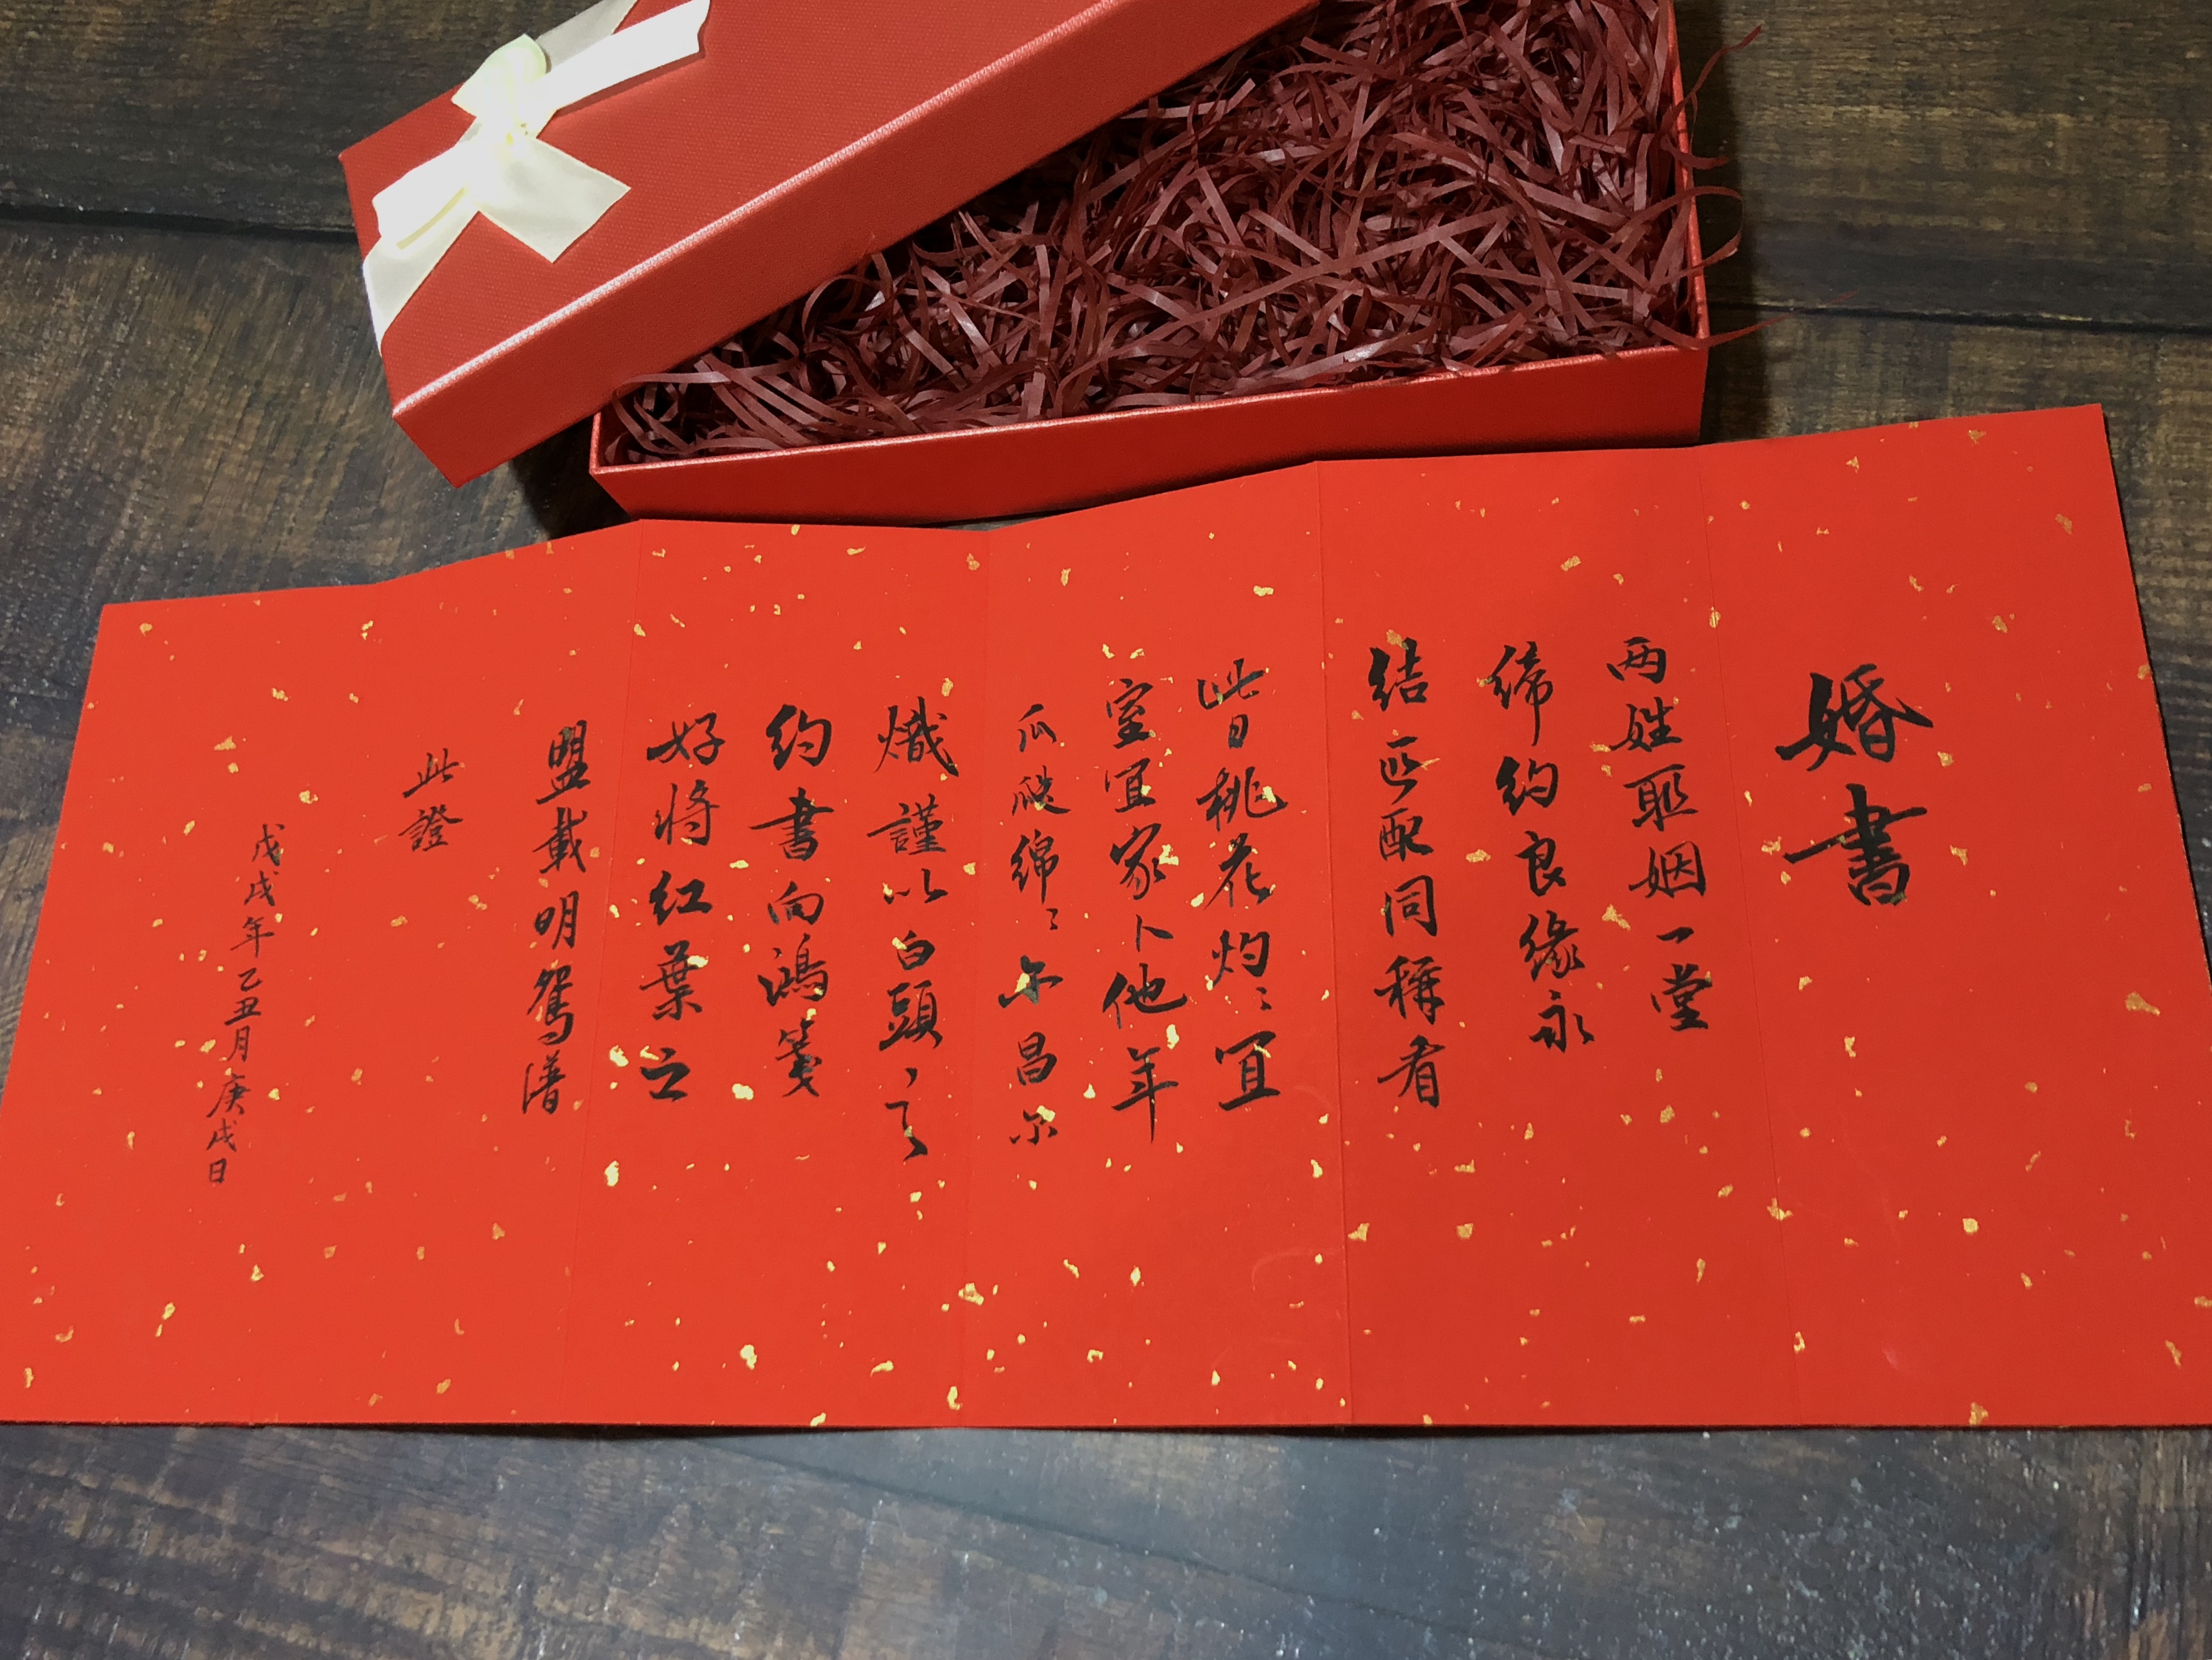 婚書
两姓聯姻一堂
缔约良缘永
结匹配同稱看
此日桃花灼〻宜
室宜家卜他年
瓜瓞绵〻尔昌尔
熾謹以白頭之
约書向鴻箋
好将红葉之
盟載明鴛譜
此證
戊戌年乙丑月庚戌日